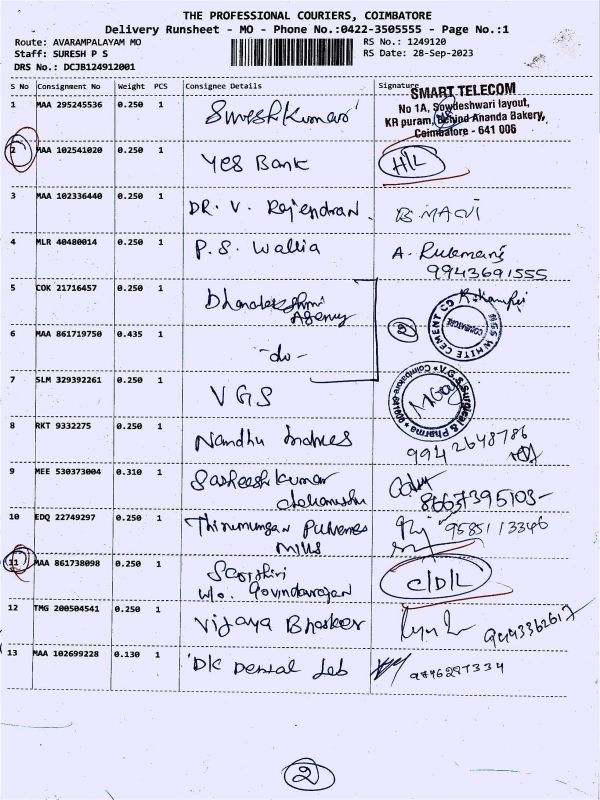 THE PROFESSIONAL COURIERS, COIMBATORE
Delivery Runsheet - MO - Phone No.:0422-3505555 - Page No.:1
Route: AVARAMPALAYAM MO
RS No.: 1249120
Staff: SURESH P S
RS Date: 28-Sep-2023
DRS No.: DCJB124912001
S No Consignment No Weight PCS Consignee Details Signature
SMART TELECOM
No 1A, Sowdeshwari layout,
KR puram, Behind Ananda Bakery,
Coimbatore - 641 006
1 MAA 295245536 0.250 1 Sureshkumar
2 MAA 102541020 0.250 1 Yes Bank H/L
3 MAA 102336440 0.250 1 DR. V. Rajendran.
4 MLR 40480014 0.250 1 P.S. Wallia A.
9943691555
5 COK 21716457 0.250 1 Dhanalakshmi
Agency
2
WHITE CEMENT CO
COIMBATORE
6 MAA 861719750 0.435 1 -do-
7 SLM 329392261 0.250 1 VGS
V.G.S Surgical & Pharma
Coimbatore-641
8 RKT 9332275 0.250 1 Nandhu 9942648786
9 MEE 530373004 0.310 1 Satheeshkumar
10 EDQ 22749297 0.250 1 Thirumurugan
Mills
9585113346
11 MAA 861738098 0.250 1
w/o. Govindarajan
C/D/L
12 TMG 200504541 0.250 1 Vijaya Bhaskar
13 MAA 102699228 0.130 1 DK Dental Lab
2